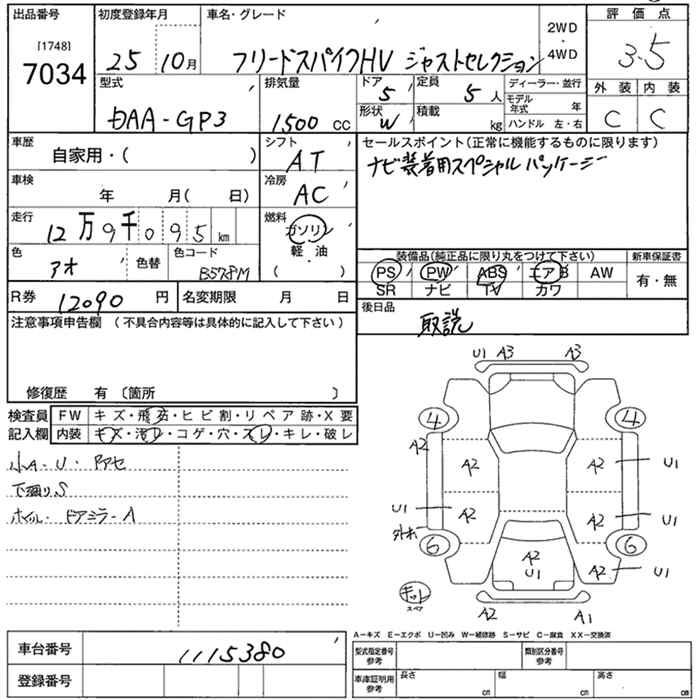 出品番号 初度登録年月 車名・グレード 評価点
[1748]
7034
25 10月 フリードスパイクHV ジャストセレクション
2WD
・
4WD
3.5
型式 排気量 ドア 定員 ディーラー・並行 外装 内装
DAA-GP3 1,500 cc 5 5人
モデル年式 年
形状 W 積載 kg ハンドル 左・右
C C
車歴 シフト セールスポイント(正常に機能するものに限ります)
自家用・( ) AT
ナビ装着用スペシャルパッケージ
車検 冷房
年 月( 日) AC
走行 燃料
12万9千095km ガソリン
軽・油
( ・ )
色 色替 色コード
アオ B578M
装備品(純正品に限り丸をつけて下さい) 新車保証書
PS PW ABS エアB AW 有・無
SR ナビ TV カワ
R券 12090 円 名変期限 月 日
後日品
取説
注意事項申告欄 (不具合内容等は具体的に記入して下さい)
修復歴 有 〔箇所 〕
検査員 FW キズ・飛石・ヒビ割・リペア跡・X要
記入欄 内装 キズ・汚レ・コゲ・穴・スレ・キレ・破レ
小A・U・
下廻りS
ホイル・ドアミラーA
U1 A3 A3
4 4
A2 A2 A2 U1
U1 A2 A2 U1
6 6
A2
U1
A2 U1
キット
スペア
A2 A1
A-キズ E-エクボ U-凹み W-補修跡 S-サビ C-腐食 XX-交換済
車台番号 1115380
登録番号
型式指定番号
参考
類別区分番号
参考
車庫証明用
参考
長さ cm 幅 cm 高さ cm